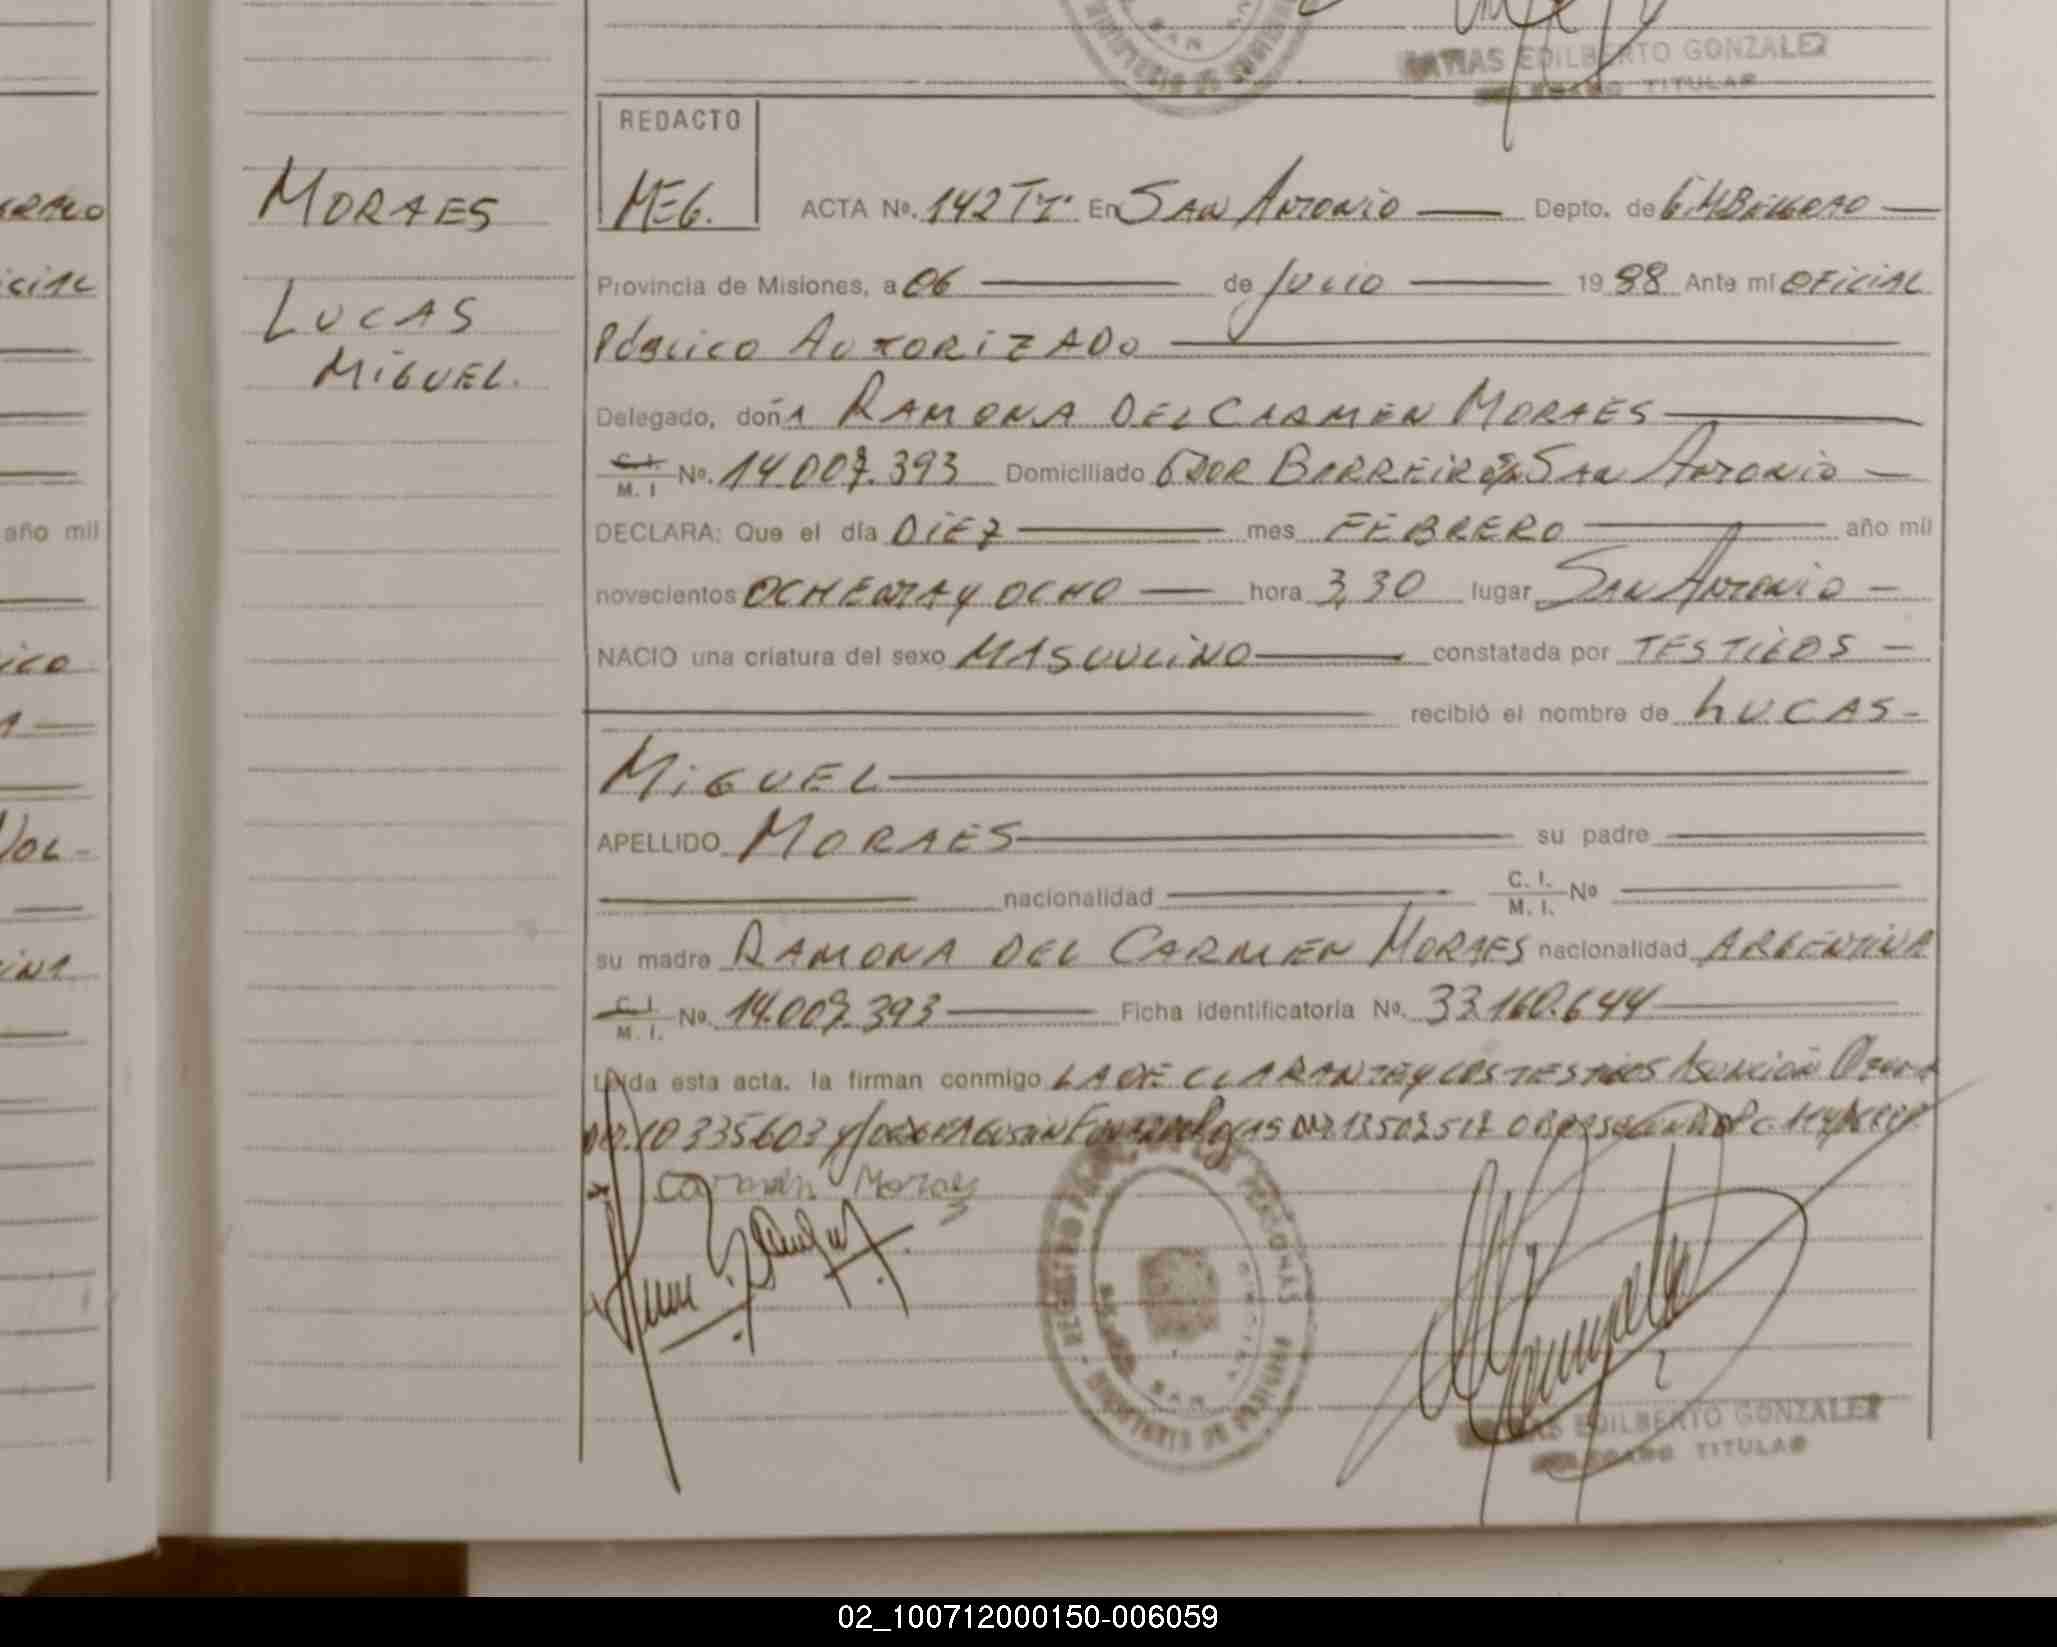 SAN
MATIAS EDILBERTO GONZALEZ
TITULAR
REDACTO
MORAES
MEG. ACTA Nº. 142 Tº I° En SAN ANTONIO Depto. de G M BELGRANO
Provincia de Misiones, a 06 de JULIO 1988 Ante mí OFICIAL
LUCAS
PÚBLICO AUTORIZADO
MIGUEL.
Delegado, doñA RAMONA DEL CARMEN MORAES
C. I. M. I Nº. 14.007.393 Domiciliado SAN ANTONIO
DECLARA: Que el día DIEZ mes FEBRERO año mil
novecientos OCHENTA Y OCHO hora 3,30 lugar SAN ANTONIO
NACIO una criatura del sexo MASCULINO constatada por TESTIGOS
recibió el nombre de LUCAS
MIGUEL
APELLIDO MORAES su padre
nacionalidad C. I. M. I. Nº
su madre RAMONA DEL CARMEN MORAES nacionalidad ARGENTINA
C. I. M. I. Nº. 14.007.393 Ficha identificatoria No. 33.160.644
Leída esta acta, la firman conmigo LA DECLARANTE Y LOS TESTIGOS ASUNCIÓN
10335603 Y
Carmen Moraes
REGISTRO PROV. DE LAS PERSONAS
SAN
MATIAS EDILBERTO GONZALEZ
TITULAR
año mil
02_100712000150-006059